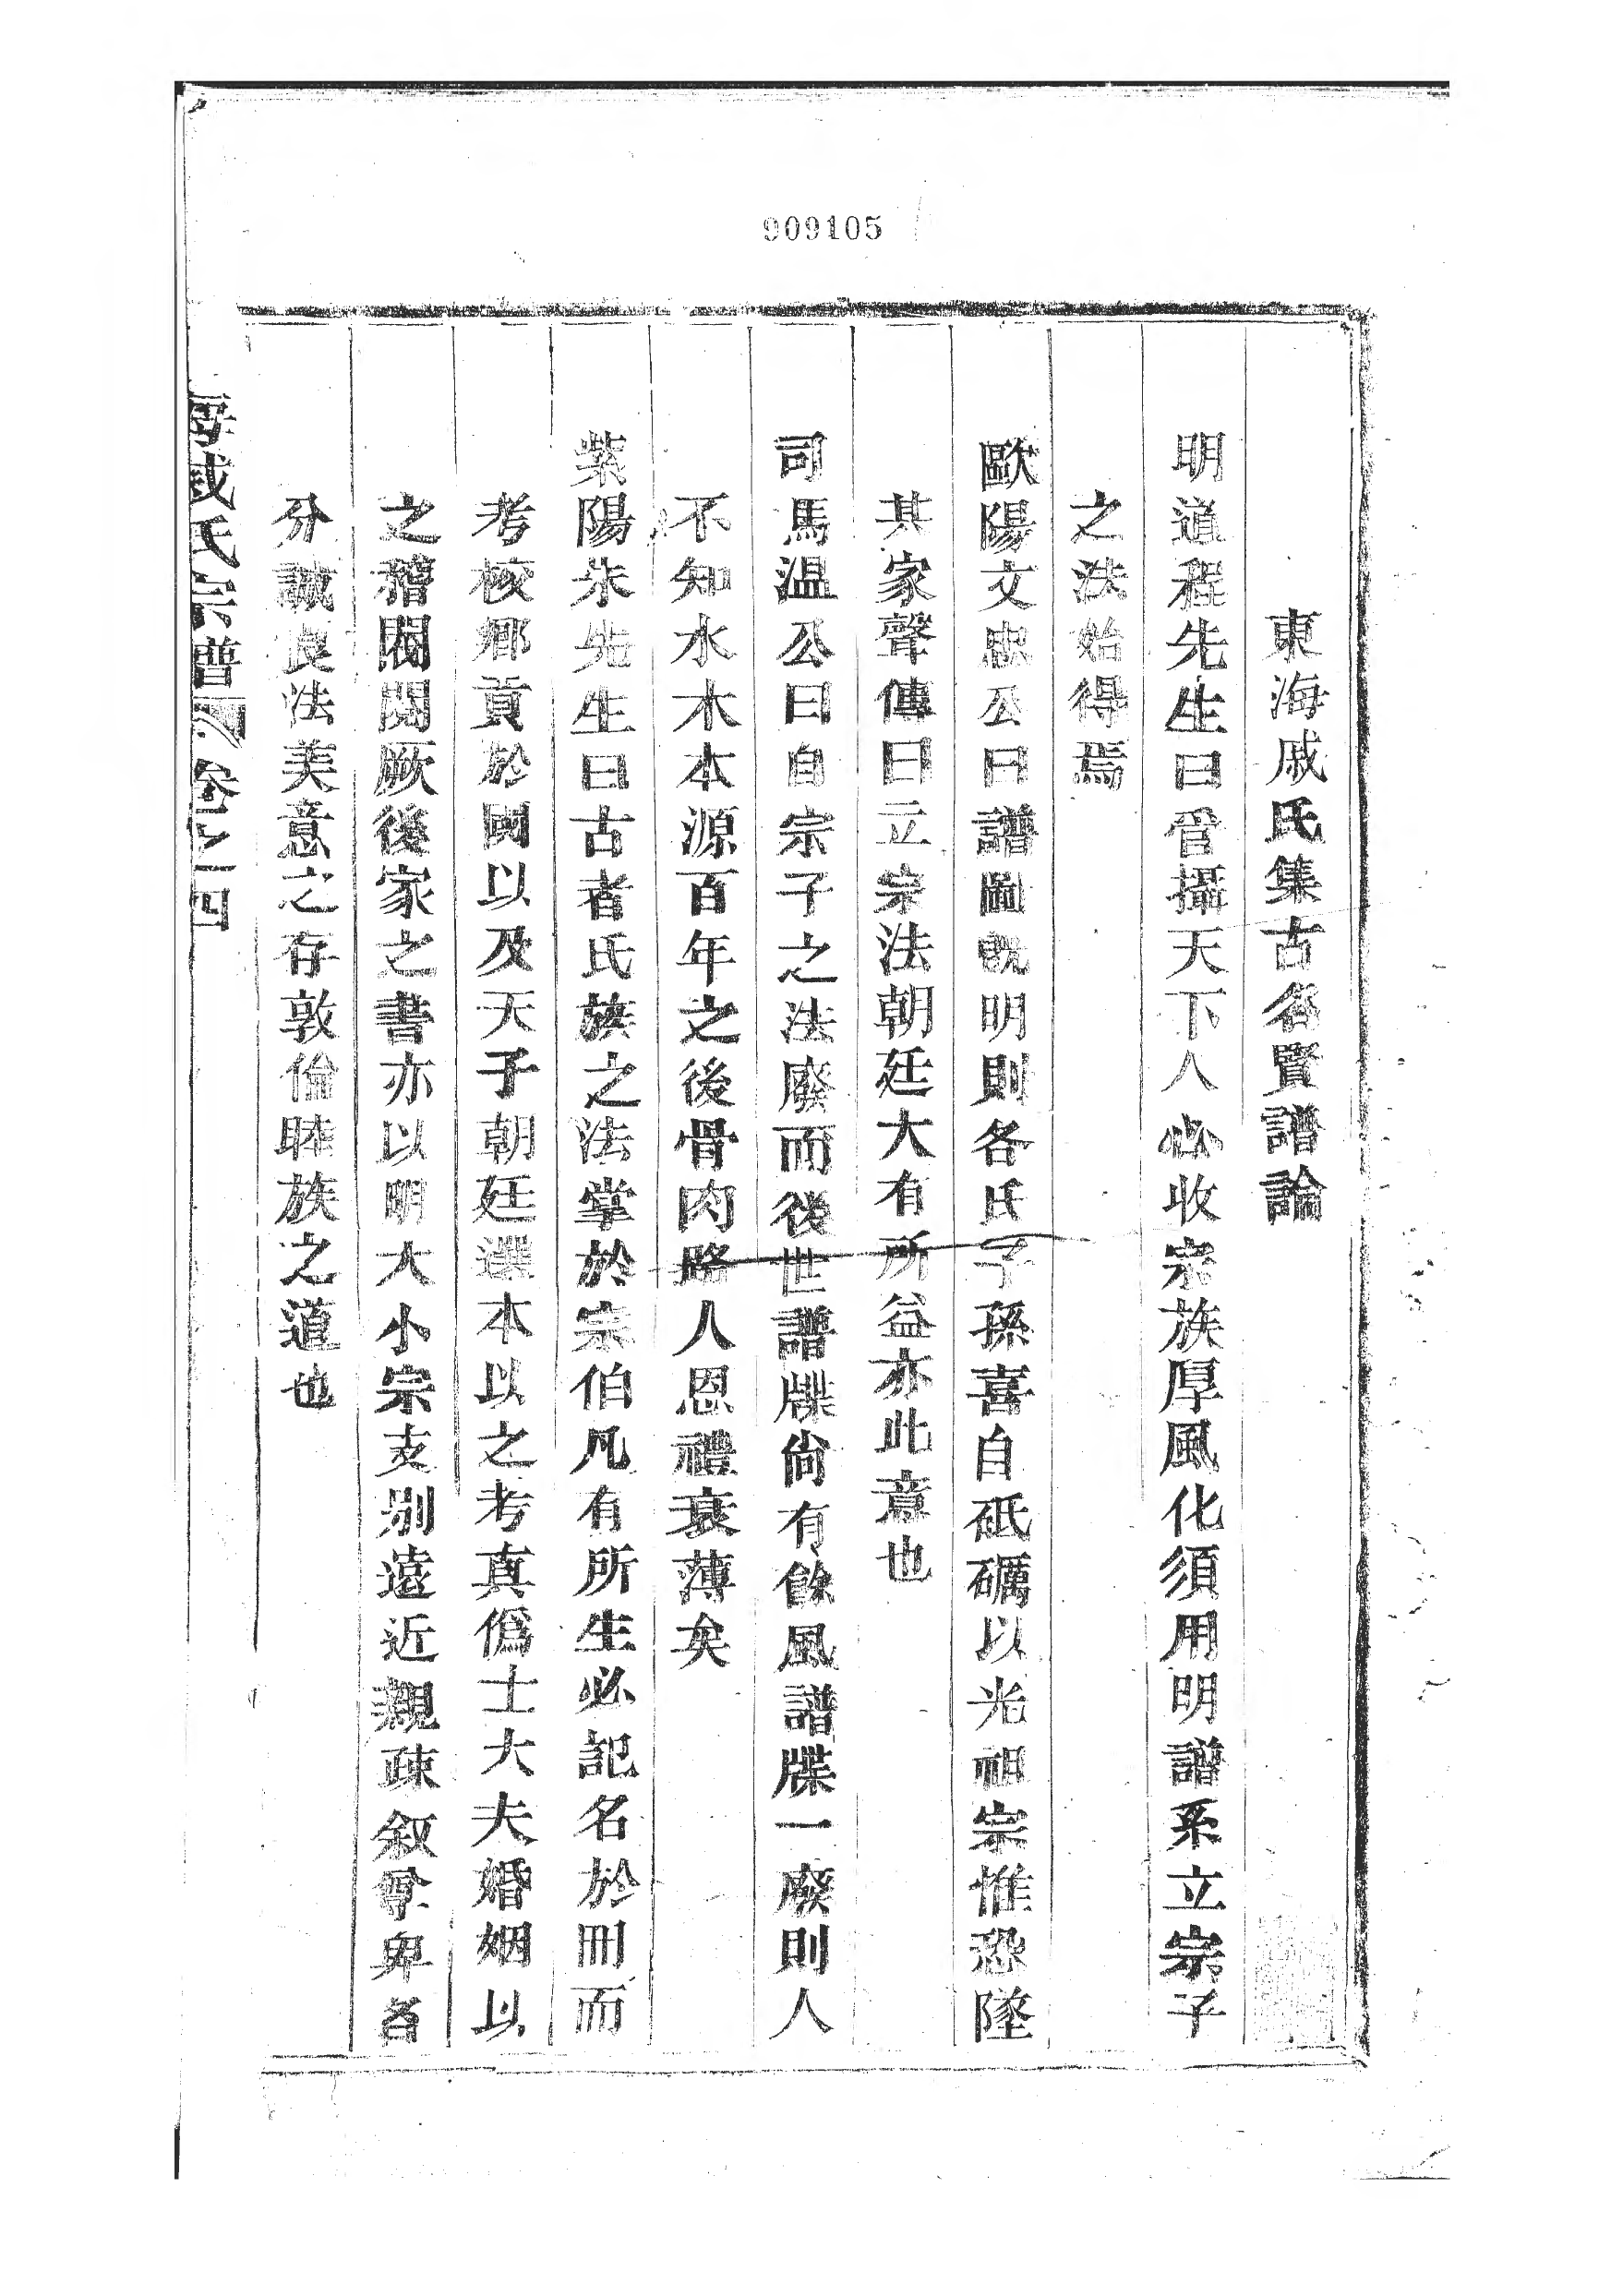 909105
東海戚氏集古名賢譜論
明道程先生曰管攝天下人必收宗族厚風化須用明譜系立宗子
之法始得焉
歐陽文忠公曰譜圖既明則各氏子孫喜自砥礪以光祖宗惟恐墜
其家聲傳曰立宗法朝廷大有所益亦此意也
司馬温公曰自宗子之法廢而後世譜牒尙有餘風譜牒一廢則人
不知水木本源百年之後骨肉路人恩禮衰薄矣
紫陽朱先生曰古者氏族之法掌於宗伯凡有所生必記名於冊而
考核鄉貢於國以及天子朝廷選本以之考真僞士大夫婚姻以
之稽閥閱厥後家之書亦以明大小宗支别遠近親疎叙尊卑各
分誠良法美意之存敦倫睦族之道也
海戚氏宗譜 卷之四